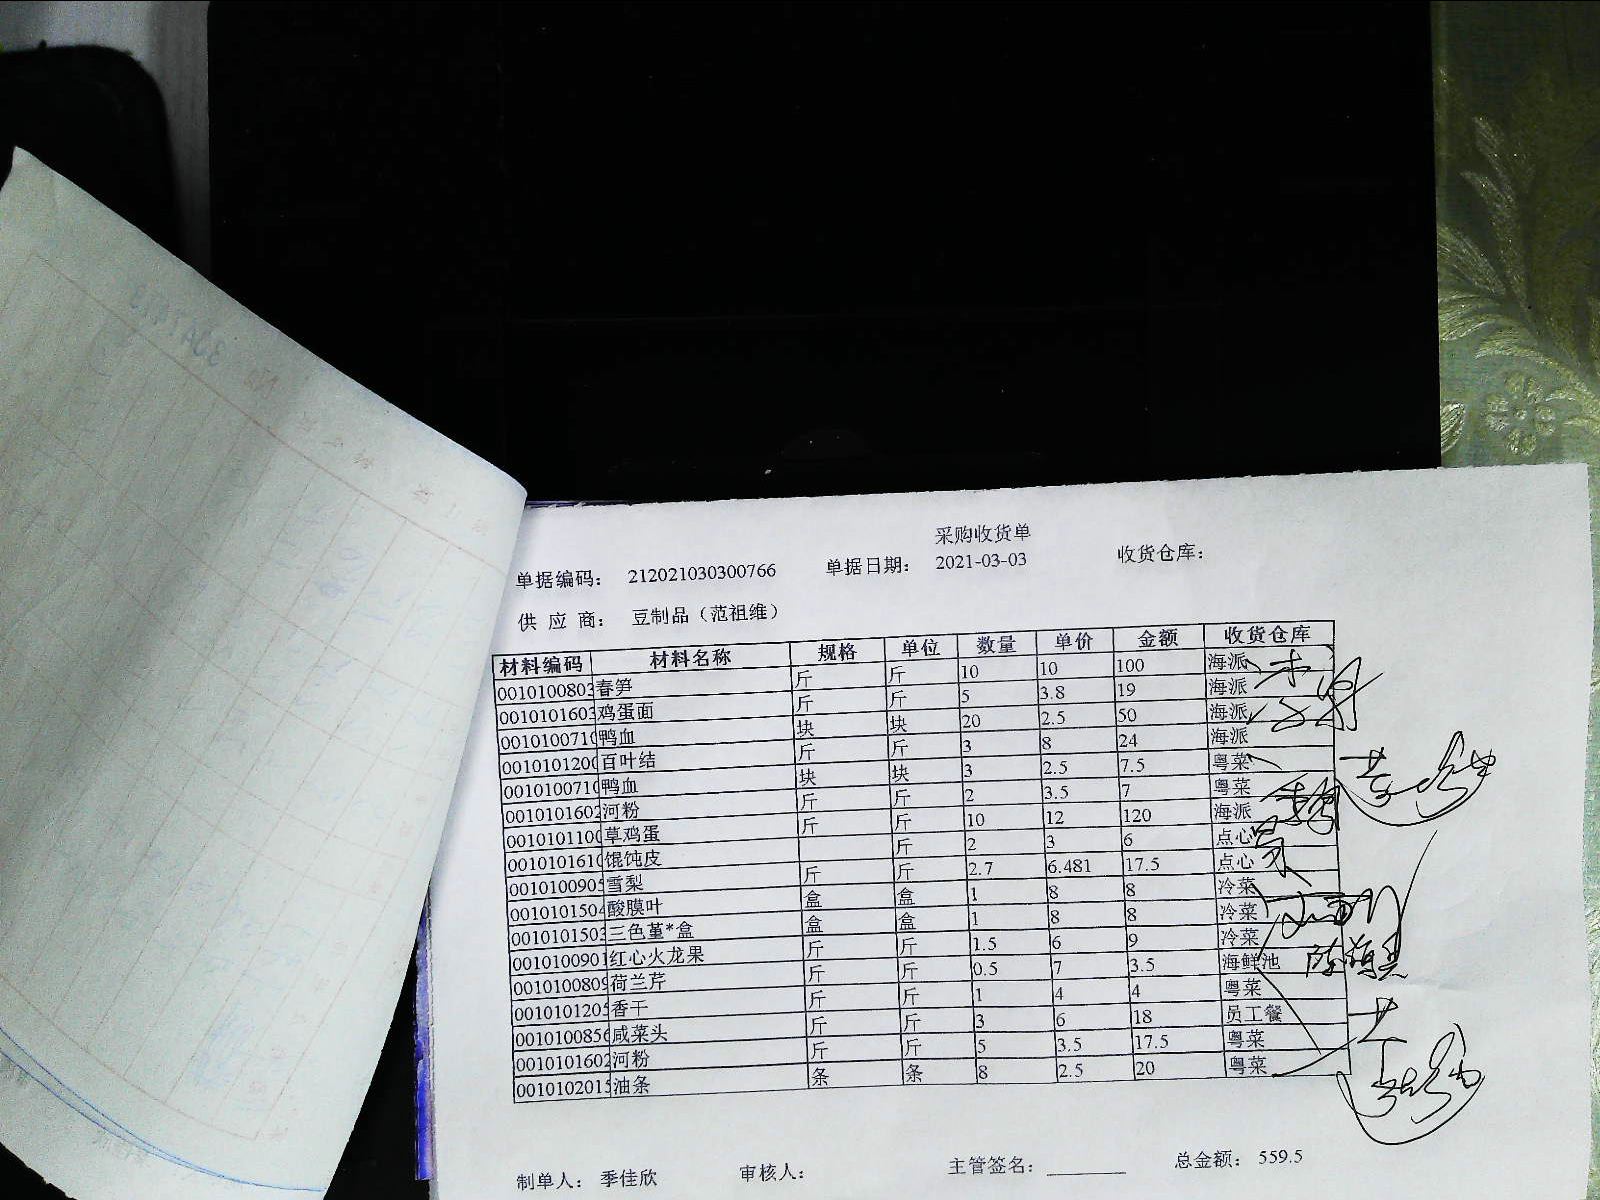 采购收货单
单据编码： 212021030300766 单据日期： 2021-03-03 收货仓库：
供 应 商： 豆制品（范祖维）
材料编码 材料名称 规格 单位 数量 单价 金额 收货仓库
0010100803 春笋 斤 斤 10 10 100 海派
0010101603 鸡蛋面 斤 斤 5 3.8 19 海派
0010100710 鸭血 块 块 20 2.5 50 海派
0010101200 百叶结 斤 斤 3 8 24 海派
0010100710 鸭血 块 块 3 2.5 7.5 粤菜
0010101602 河粉 斤 斤 2 3.5 7 粤菜
0010101100 草鸡蛋 斤 斤 10 12 120 海派
0010101610 馄饨皮 斤 2 3 6 点心
0010100905 雪梨 斤 斤 2.7 6.481 17.5 点心
0010101504 酸膜叶 盒 盒 1 8 8 冷菜
0010101503 三色堇*盒 盒 盒 1 8 8 冷菜
0010100901 红心火龙果 斤 斤 1.5 6 9 冷菜
0010100809 荷兰芹 斤 斤 0.5 7 3.5 海鲜池
0010101205 香干 斤 斤 1 4 4 粤菜
0010100856 咸菜头 斤 斤 3 6 18 员工餐
0010101602 河粉 斤 斤 5 3.5 17.5 粤菜
0010102015 油条 条 条 8 2.5 20 粤菜
制单人： 季佳欣 审核人： 主管签名： 总金额： 559.5